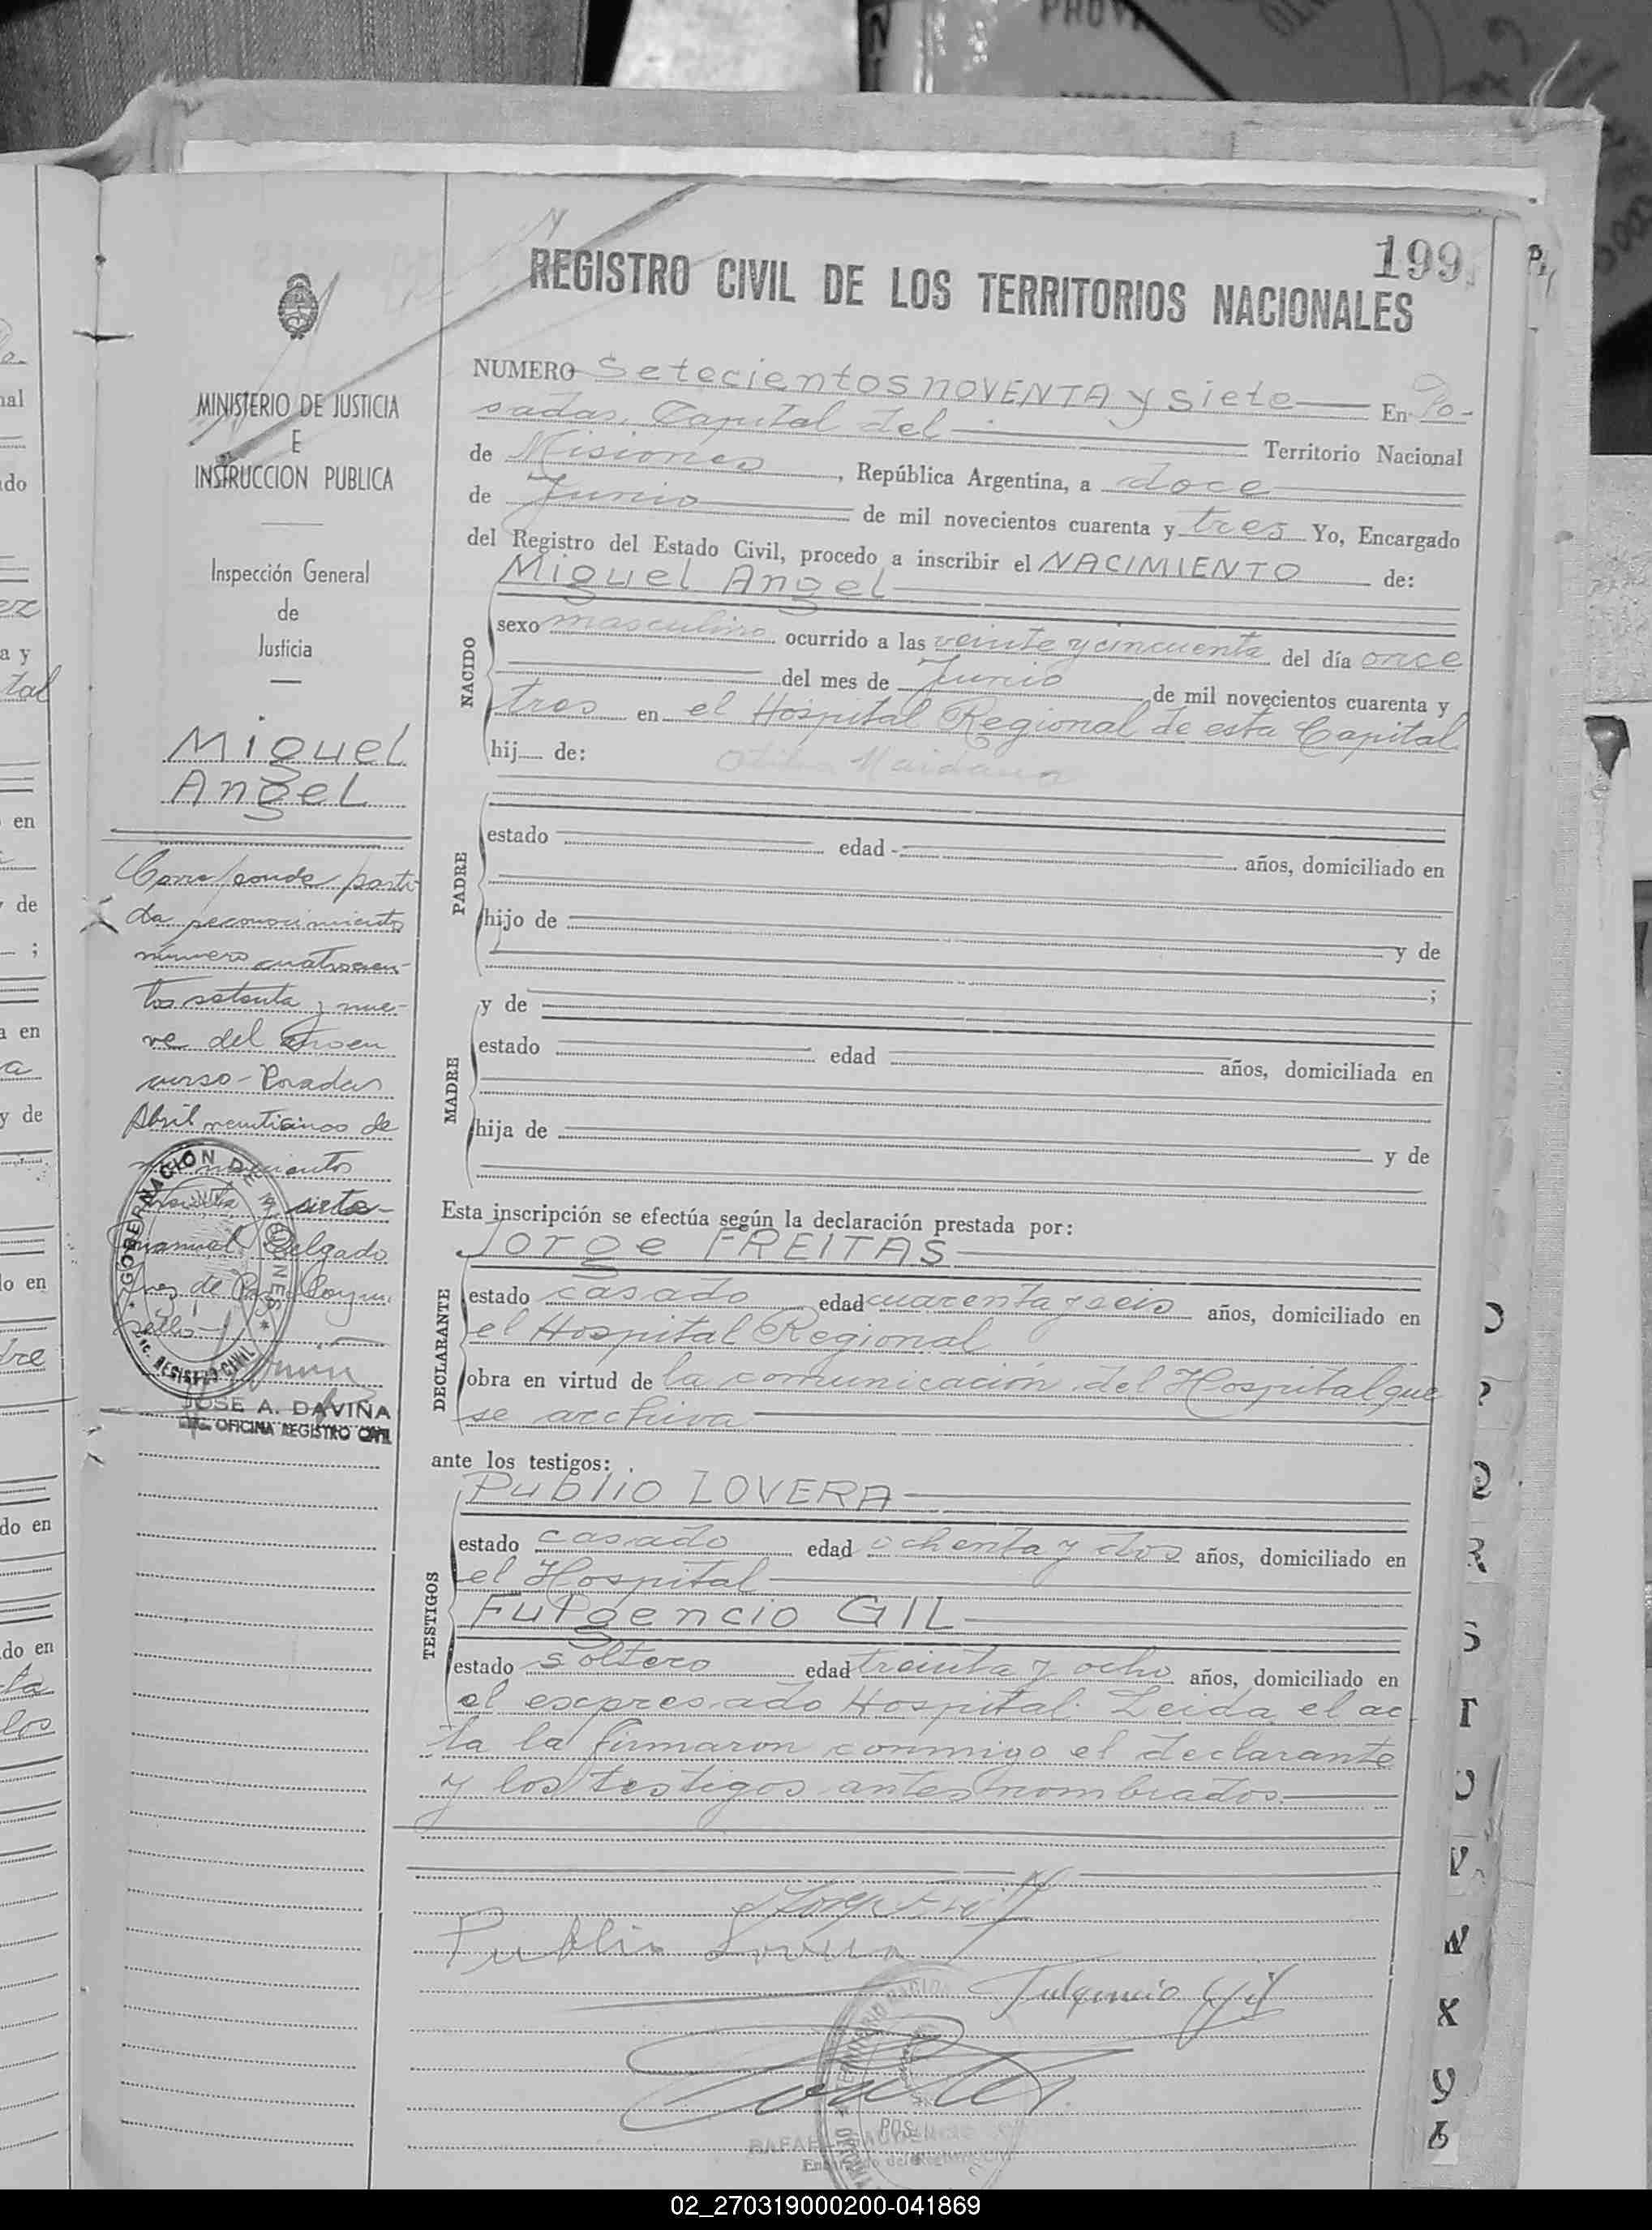 199
REGISTRO CIVIL DE LOS TERRITORIOS NACIONALES
MINISTERIO DE JUSTICIA
E
INSTRUCCION PUBLICA
Inspección General
de
Justicia
Miguel
Angel
Corresponde parti-
da reconocimiento
número cuatrocien-
tos setenta y nue-
ve del año en
curso - Posadas
Abril veinticinco de
novecientos
y siete -
Manuel Delgado
Juez de Paz
GOBERNACION DE MISIONES
REGISTRO CIVIL
JOSE A. DAVIÑA
ENC. OFICINA REGISTRO CIVIL
NUMERO Setecientos NOVENTA y siete En Po-
sadas, Capital del Territorio Nacional
de Misiones, República Argentina, a doce
de Junio de mil novecientos cuarenta y tres Yo, Encargado
del Registro del Estado Civil, procedo a inscribir el NACIMIENTO de:
Miguel Angel
NACIDO
sexo masculino ocurrido a las veinte y cincuenta del día once
del mes de Junio de mil novecientos cuarenta y
tres en el Hospital Regional de esta Capital
hij de:
Maidana
PADRE
estado edad años, domiciliado en
hijo de
y de
;
MADRE
y de
estado edad años, domiciliada en
hija de
y de
Esta inscripción se efectúa según la declaración prestada por:
Jorge FREITAS
DECLARANTE
estado casado edad cuarenta y seis años, domiciliado en
el Hospital Regional
obra en virtud de la comunicación del Hospital que
se archiva
ante los testigos:
Publio LOVERA
TESTIGOS
estado casado edad ochenta y dos años, domiciliado en
el Hospital
Fulgencio GIL
estado soltero edad treinta y ocho años, domiciliado en
el expresado Hospital. Leida el ac
ta la firmaron conmigo el declarante
y los testigos antes nombrados.
Publio Lovera
Fulgencio Gil
02_270319000200-041869